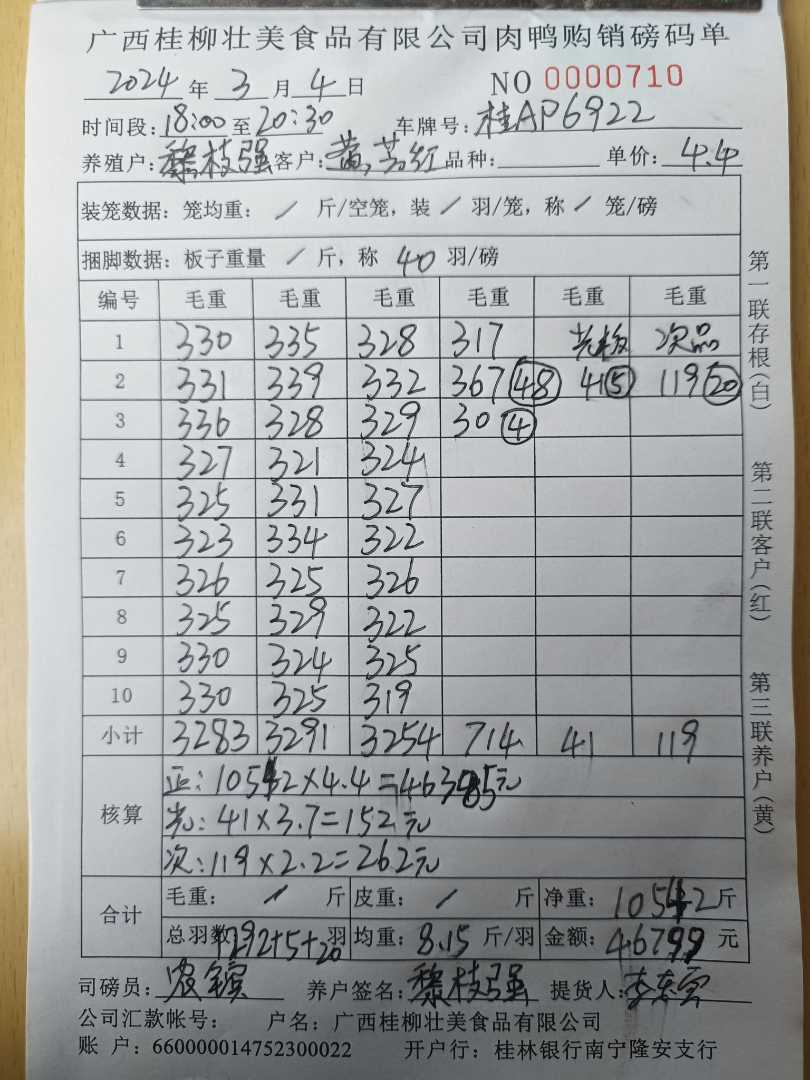 广西桂柳壮美食品有限公司肉鸭购销磅码单
2024年3月4日 NO 0000710
时间段:18:00至20:30 车牌号:桂AP6922
养殖户:黎枝强 客户:黄 红 品种: 单价:4.4
装笼数据:笼均重:/斤/空笼,装/羽/笼,称/笼/磅
捆脚数据:板子重量/斤,称40羽/磅
编号 毛重 毛重 毛重 毛重 毛重 毛重
1 330 335 328 317 光板 次品
2 331 339 332 367 48 41 5 119 20
3 336 328 329 30 4
4 327 321 324
5 325 331 327
6 323 334 322
7 326 325 326
8 325 329 322
9 330 324 325
10 330 325 319
小计 3283 3291 3254 714 41 119
核算 正:10542×4.4=46385元
光:41×3.7=152元
次:119×2.2=262元
合计 毛重:/斤 皮重:/斤 净重:10542斤
总羽数 1292+5+20羽 均重:8.15斤/羽 金额:46799元
司磅员:农 养户签名:黎枝强 提货人:李
公司汇款帐号: 户名:广西桂柳壮美食品有限公司
账 户:660000014752300022 开户行:桂林银行南宁隆安支行
第一联存根(白)
第二联客户(红)
第三联养户(黄)